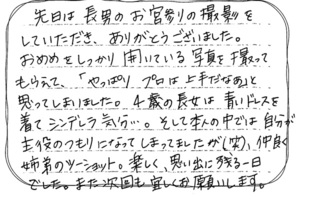 先日は長男のお宮参りの撮影を
していただき、ありがとうございました。
おめめをしっかり開いている写真を撮って
もらえて、「やっぱりプロは上手だなあ」と
思ってしまいました。4歳の長女は青いドレスを
着てシンデレラ気分…。そして本人の中では自分が
主役のつもりになってしまってましたが(笑)、仲良く
姉弟のツーショット。楽しく、思い出に残る一日
でした。また次回も宜しくお願いします。